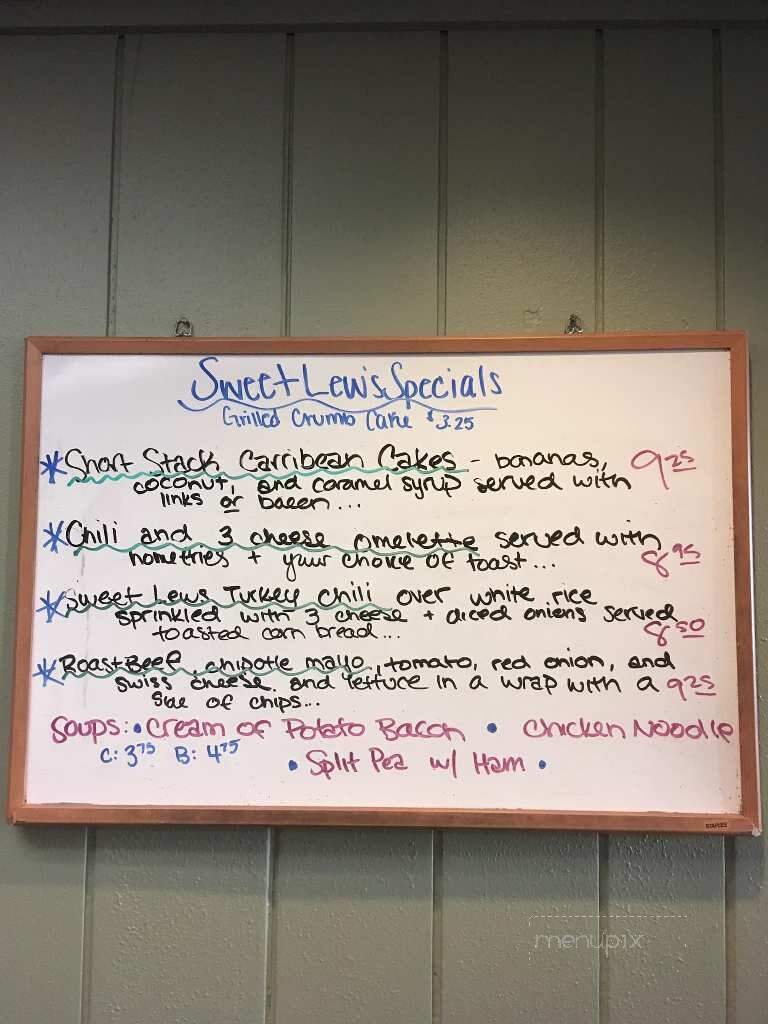 Sweet Lew's Specials
Grilled Crumb Cake $3.25
*Short Stack Carribean Cakes - bananas, 9 25
coconut, and caramel syrup served with
links or bacon...
*Chili and 3 cheese omelette served with
homefries + your choice of toast... 8 95
*Sweet Lews Turkey chili over white rice
sprinkled with 3 cheese + diced onions served
toasted corn bread... 8 50
*Roast Beef, chipotle mayo, tomato, red onion, and
swiss cheese and lettuce in a wrap with a 9 25
side of chips...
Soups: • Cream of Potato Bacon • Chicken Noodle
C: 3 75 B: 4 75 • Split Pea w/ Ham •
STAPLES
menupix